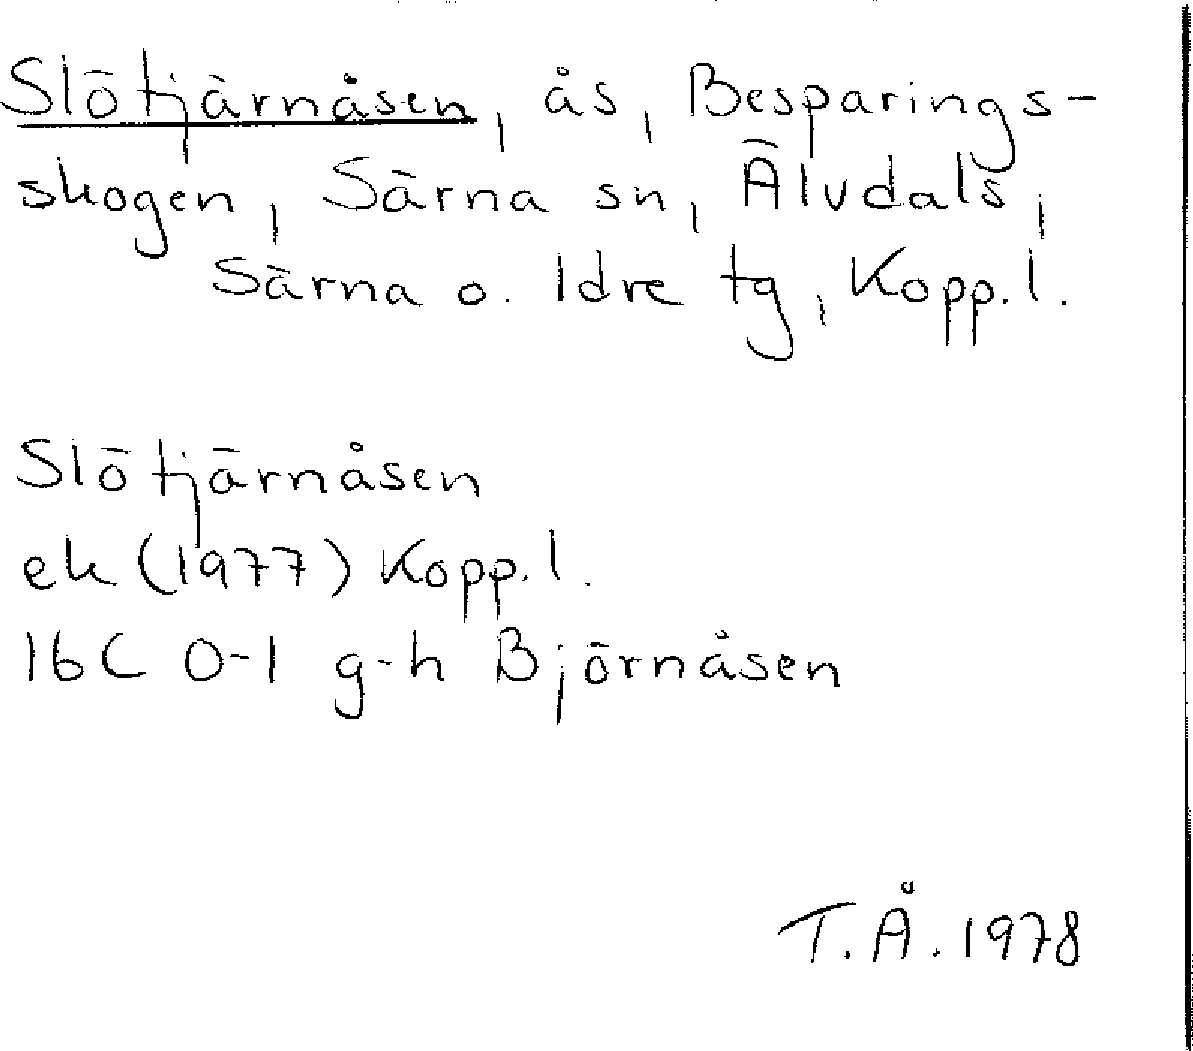 Slötjärnåsen, ås, Besparings-
skogen, Särna sn, Älvdals,
Särna o. Idre tg, Kopp. l.
Slötjärnåsen
ek (1977) Kopp. l.
16C 0-1 g-h Björnåsen
T.Å. 1978